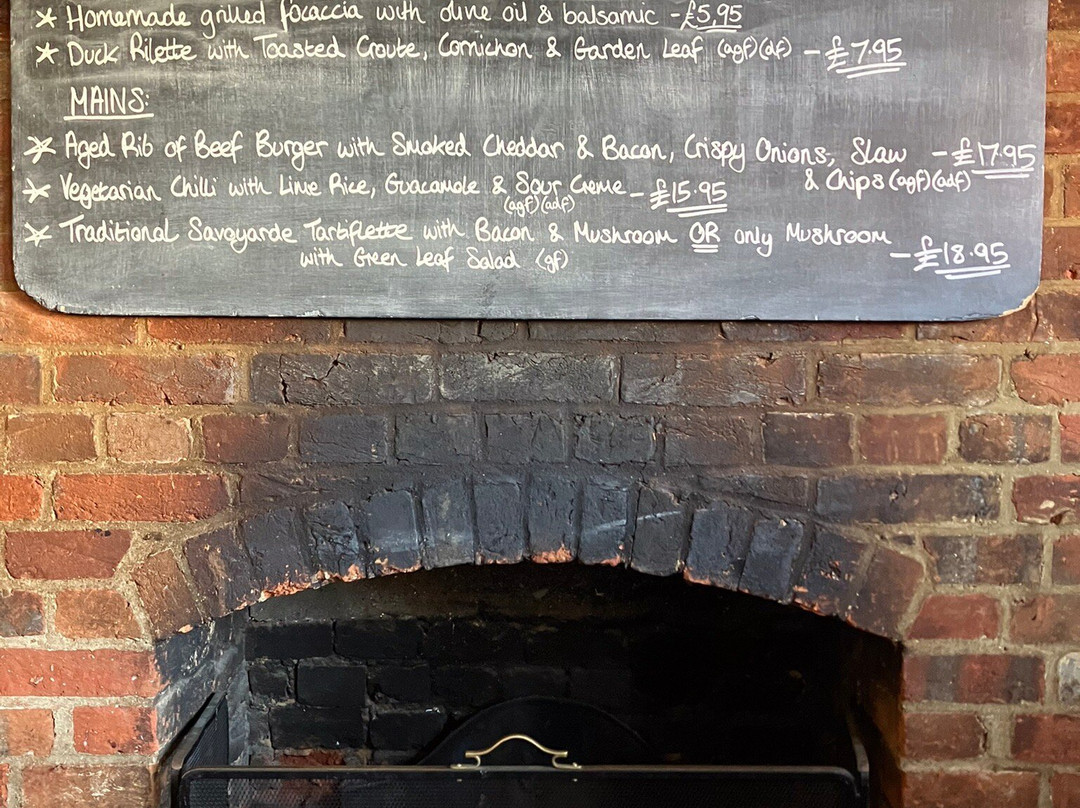 * Homemade grilled focaccia with olive oil & balsamic - £5.95
* Duck Rilette with Toasted Croute, Cornichon & Garden Leaf (agf)(df) - £7.95
MAINS:
* Aged Rib of Beef Burger with Smoked Cheddar & Bacon, Crispy Onions, Slaw - £17.95
& Chips (agf)(adf)
* Vegetarian Chilli with Lime Rice, Guacamole & Sour Creme - £15.95
(agf)(adf)
* Traditional Savoyarde Tartiflette with Bacon & Mushroom OR only Mushroom
with Green Leaf Salad (gf) - £18.95